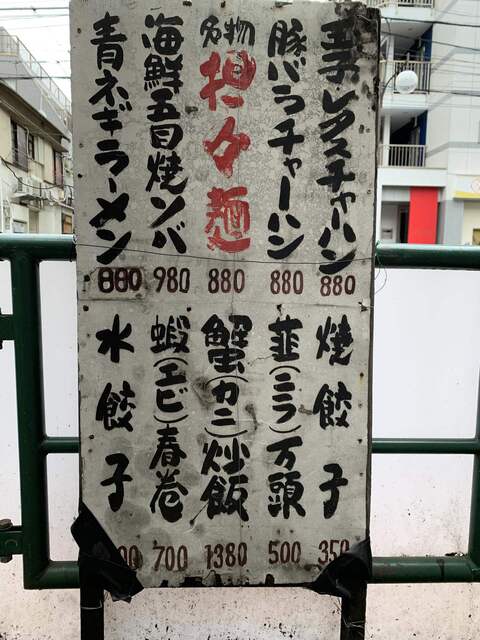 玉子レタスチャーハン
880
豚バラチャーハン
880
名物
担々麺
880
海鮮五目焼ソバ
980
青ネギラーメン
880
焼餃子
350
韮(ニラ)万頭
500
蟹(カニ)炒飯
1380
蝦(エビ)春巻
700
水餃子